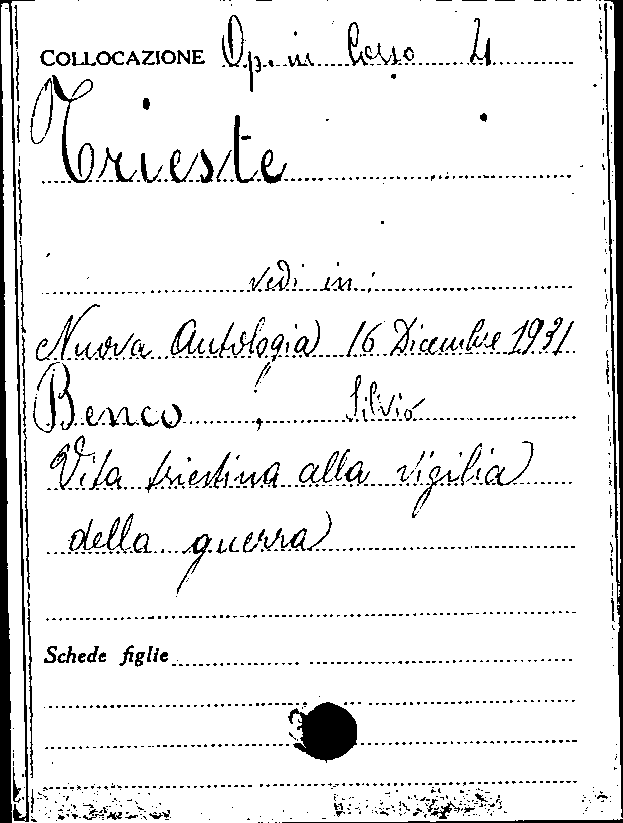 COLLOCAZIONE Op. in Corso 4
Trieste
vedi in:
Nuova Antologia 16 Dicembre 1931
Benco, Silvio
Vita triestina alla vigilia
della guerra
Schede figlie